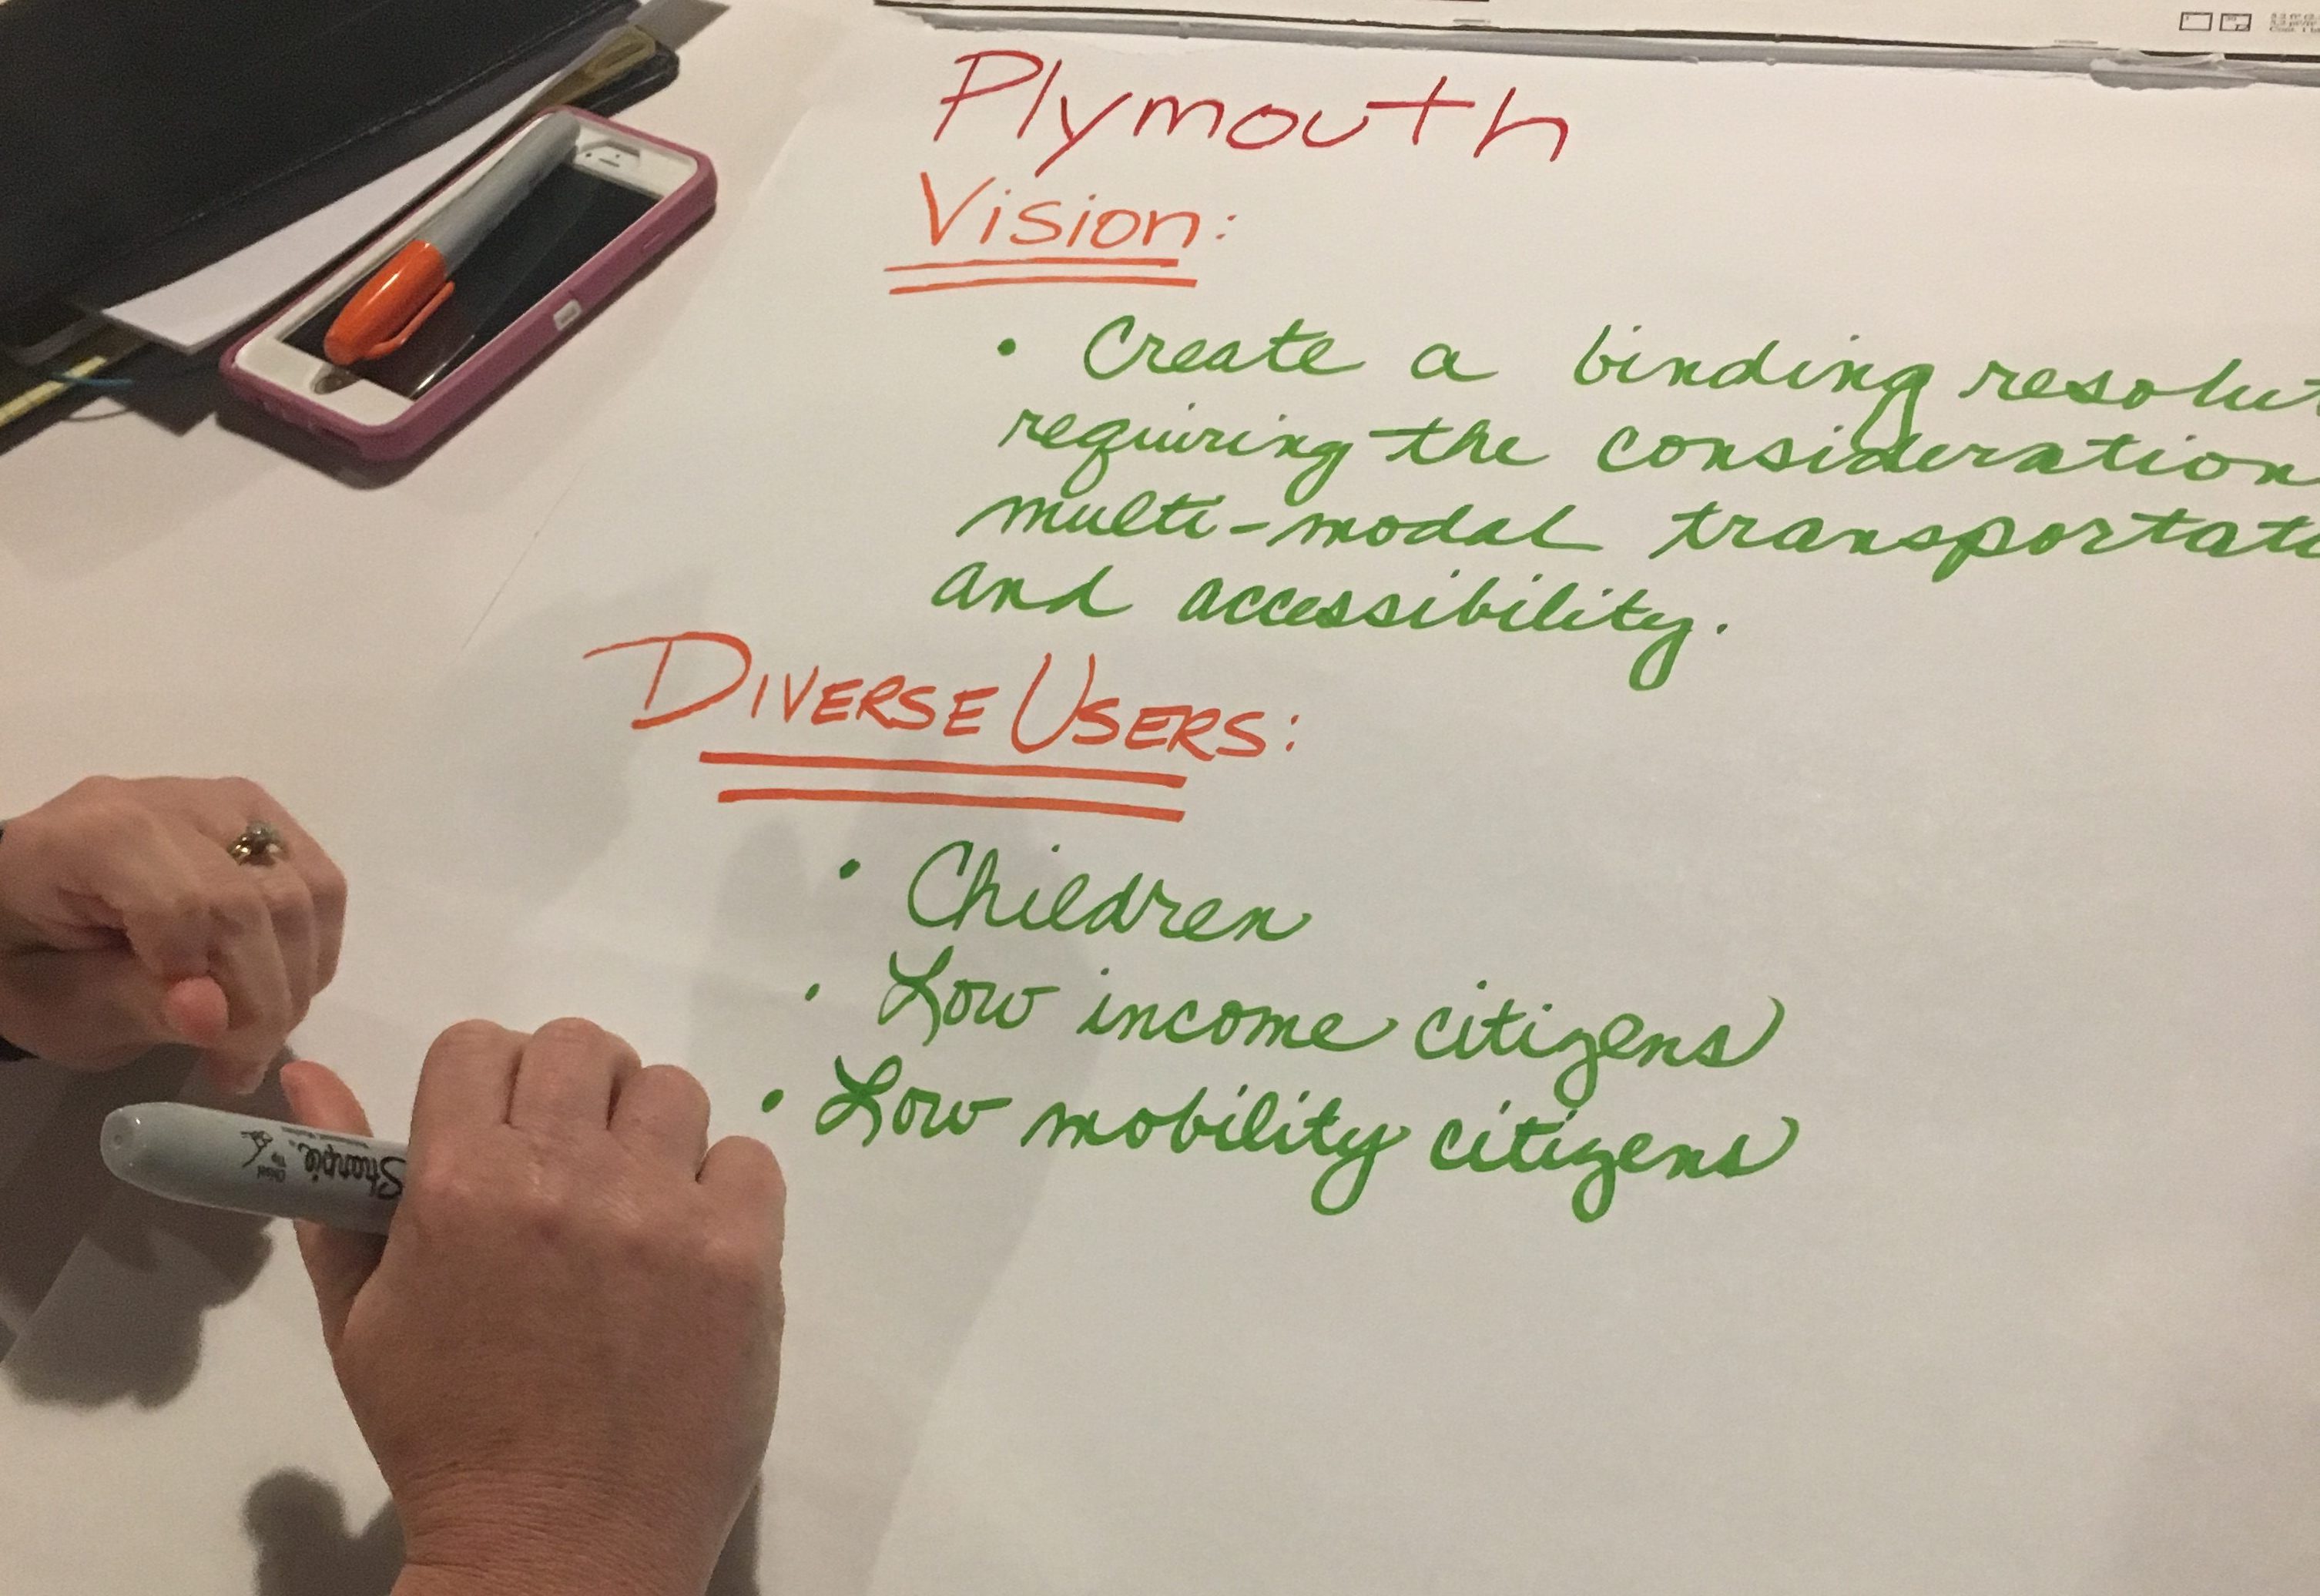 Plymouth
Vision:
• Create a binding resolut
requiring the consideration
multi-modal transportati
and accessibility.
DIVERSE USERS:
• Children
• Low income citizens
• Low mobility citizens
Sharpie